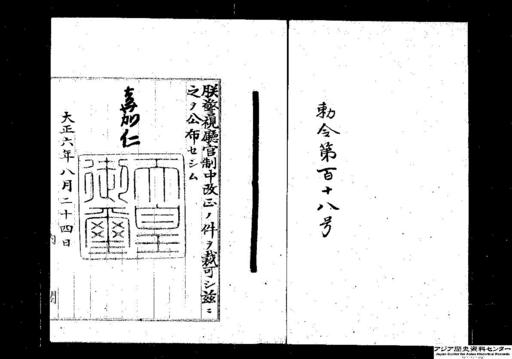 勅令第百十八号
朕警視廳官制中改正ノ件ヲ裁可シ茲ニ
之ヲ公布セシム
嘉仁
天皇御璽
大正六年八月二十四日
内
閣
アジア歴史資料センター
Japan Center for Asian Historical Records